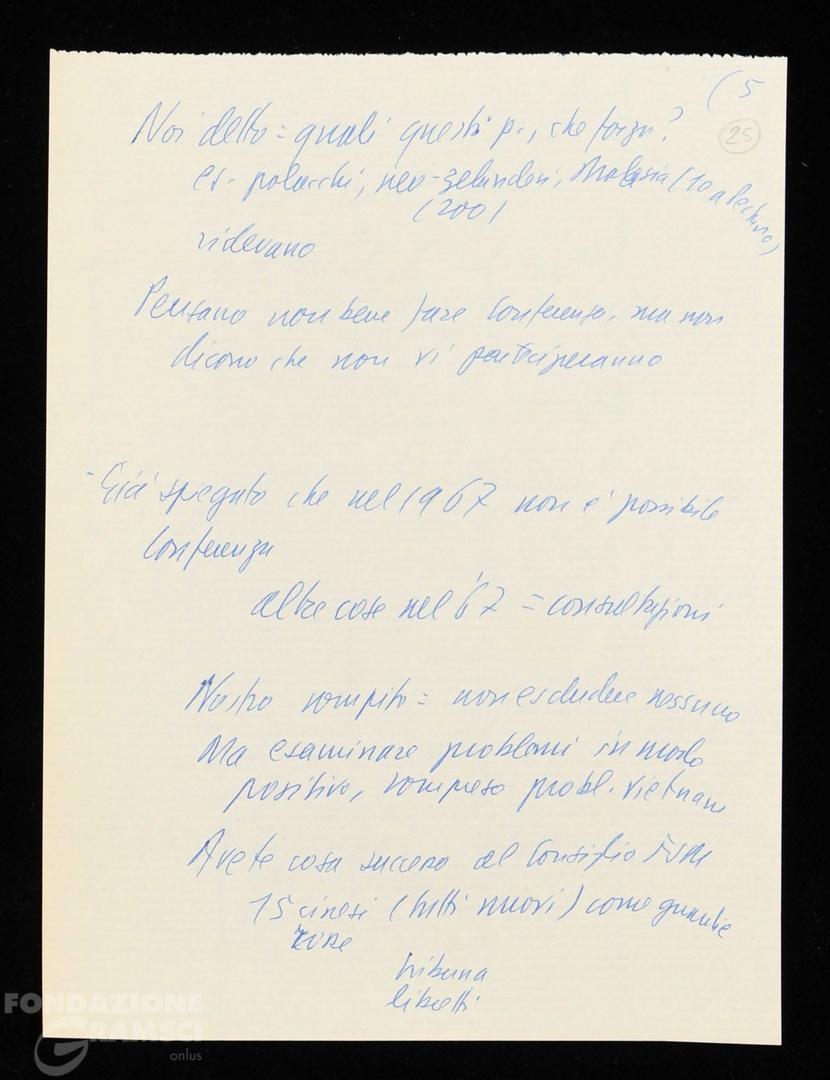 (5
25
Noi detto = quali questi p., che forza?
es. polacchi, neo-zelandesi, Malesia (10 a Pechino)
(200)
ridevano
Pensano non bene fare conferenza, ma non
dicono che non vi parteciperanno
- Già spiegato che nel 1967 non è possibile
conferenza
altre cose nel '67 = consultazioni
Nostro compito = non escludere nessuno
Ma esaminare problemi in modo
positivo, compreso probl. Vietnam
Avete cosa successo al Consiglio FSM
15 cinesi (tutti nuovi) come guardie
rosse
tribuna
libretti
FONDAZIONE
GRAMSCI
onlus